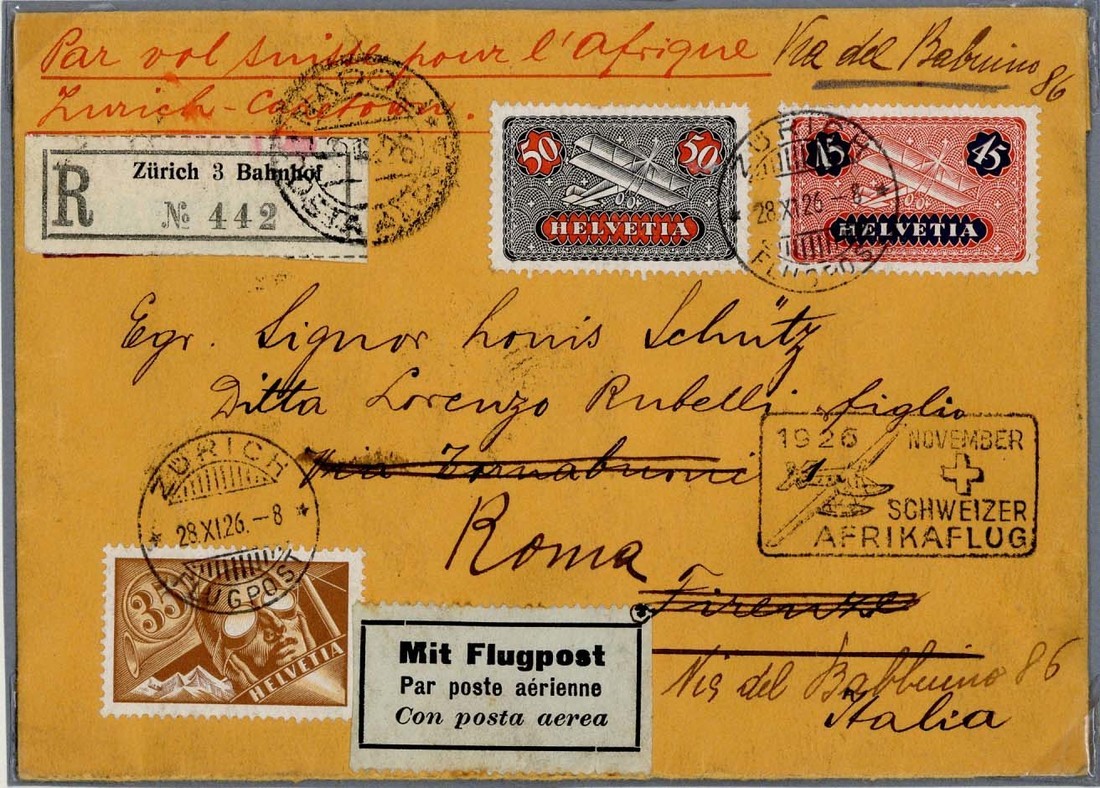 Par vol suisse pour l'Afrique
Zurich-Capetown.
Via del Babuino
86
R
Zürich 3 Bahnhof
№ 442
NAPOLI
POSTA
50 50
HELVETIA
15 45
HELVETIA
ZÜRICH
28.XI.26.-8
FLUGPOST
Egr. Signor Louis Schütz
Ditta Lorenzo Rubelli figlio
Via Tornabuoni
Roma
Firenze
Via del Babbuino 86
Italia
1926 NOVEMBER
SCHWEIZER
AFRIKAFLUG
ZÜRICH
28.XI.26.-8
FLUGPOST
35
HELVETIA
Mit Flugpost
Par poste aérienne
Con posta aerea